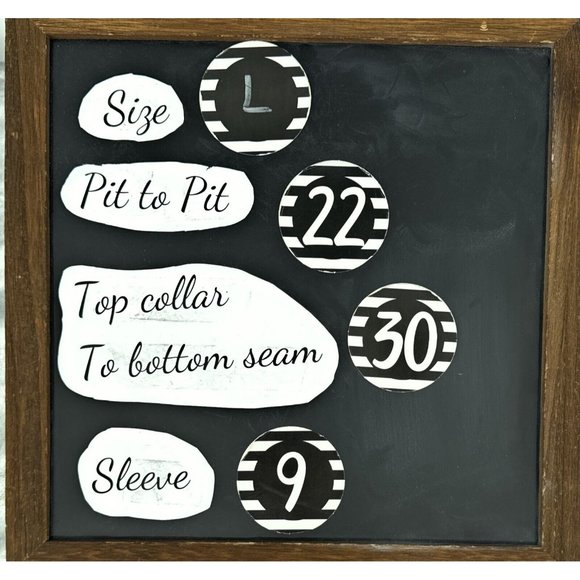 Size L
Pit to Pit 22
Top collar
To bottom seam 30
Sleeve 9